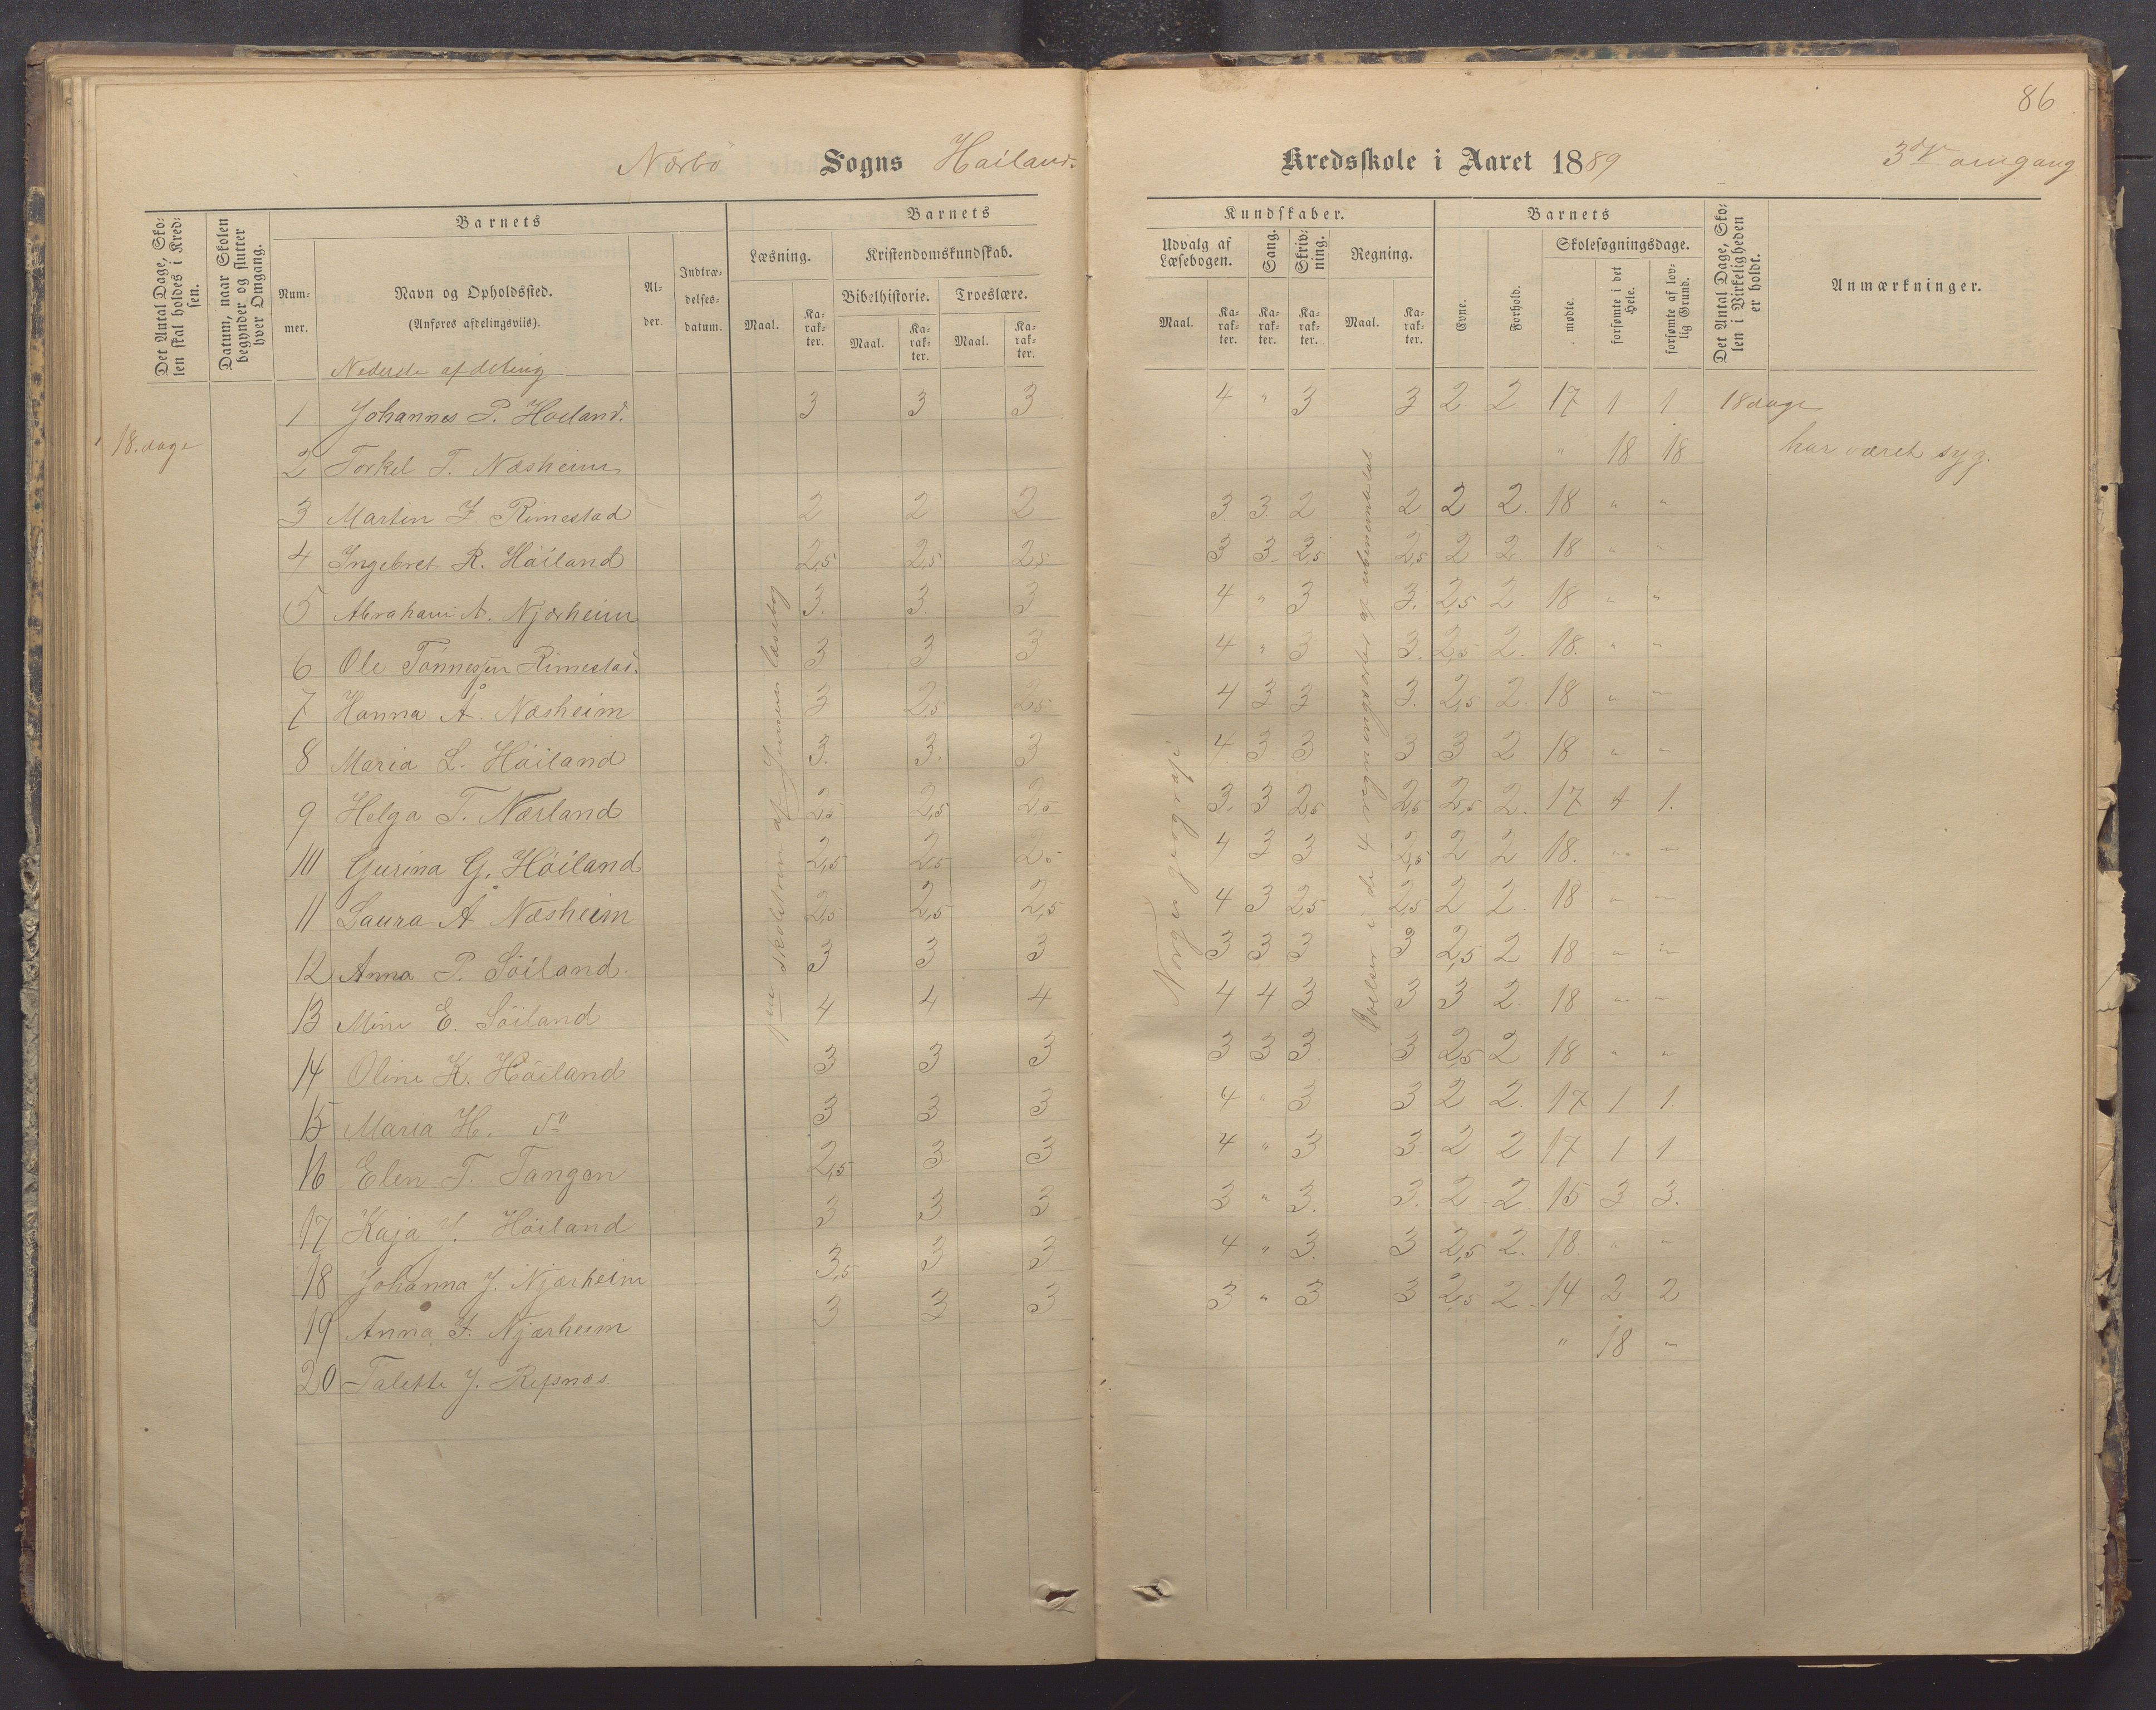 86
Nærbö Sogns Høiland. Kredsskole i Aaret 1889 3die omgang
Det Antal Dage, Skolen skal holdes i Kredsen.
Datum, naar Skolen begynder og slutter hver Omgang.
Barnets
Nummer.
Navn og Opholdssted.
(Anføres afdelingsviis).
Alder.
Indtrædelsesdatum.
Barnets
Læsning.
Maal.
Karakter.
Kristendomskundskab.
Bibelhistorie.
Maal.
Karakter.
Troeslære.
Maal.
Karakter.
Kundskaber.
Udvalg af Læsebogen.
Maal.
Karakter.
Sang.
Karakter.
Skrivning.
Karakter.
Regning.
Maal.
Karakter.
Barnets
Evne.
Forhold.
Skolesøgningsdage.
mødte.
forsømte i det Hele.
forsømte af lovlig Grund.
Det Antal Dage, Skolen i Virkeligheden er holdt.
Anmærkninger.
Nederste afdeling
1 Johannes P. Høiland. 3 3 3 4 " 3 3 2 2 17 1 1 18 dage
18. dage
2 Torkel T. Næsheim " 18 18 har været syg.
3 Martin J. Rimestad 2 2 2 3 3 2 2 2 2. 18 " "
4 Ingebret R. Höiland 2,5 2,5 2,5 3 3 2,5 2,5 2 2 18 " "
5 Abraham A. Njærheim 3. 3. 3 4 " 3 3. 2,5 2 18 " "
6 Ole Tönnessen Rimestad. 3 3 3 4 " 3 3. 2,5 2. 18. " "
7 Hanna Å. Næsheim 3 2,5 2,5 4 3 3 3. 2,5 2. 18 " "
8 Maria L. Höiland 3. 3. 3 4 3 3 3 3 2 18 " "
9 Helga T. Nærland 2,5 2,5 2,5 3. 3 2,5 2,5 2,5 2. 17 1 1.
10 Gurina G. Höiland 2,5 2,5 2,5 4 3 3 2,5 2 2 18. " "
11 Laura Å Næsheim 2,5 2,5 2,5 4 3 2,5 2,5 2 2. 18 " "
12 Anna P. Söiland. 3 3 3 3 3 3 3 2,5 2 18 " "
13 Mine E. Söiland 4 4 4 4 4 3 3 3 2. 18 " "
14 Oline K. Höiland 3 3 3 3 3 3 3 2,5 2 18 " "
15 Maria H. do 3 3 3 4 " 3 3 2 2. 17 1 1.
16 Elen T. Tangen 2,5 3 3 4 " 3 3 2 2 17 1 1
17 Kaja J. Höiland 3 3 3 3 " 3. 3. 2 2. 15 3 3.
18 Johanna J. Njærheim 3,5 3 3 4 " 3. 3 2,5 2. 18 " "
19 Anna J. Njærheim 3 3 3 3 " 3 3 2,5 2 14 2 2
20 Talette J. Refsnæs. " 18 "
1ste skoletrin af Jensens læsebog
Norges geografi.
Øvelser i de 4 regningsarter af ubenævnte tal